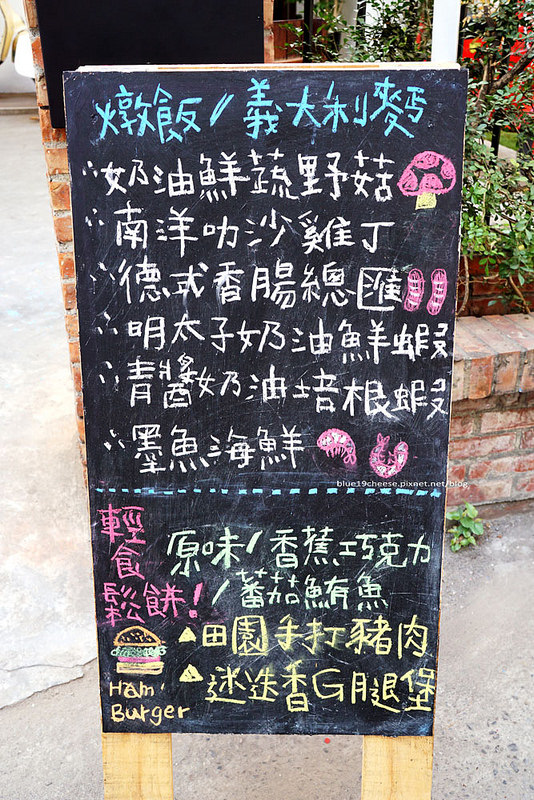 燉飯/義大利麵
奶油鮮蔬野菇
南洋叻沙雞丁
德式香腸總匯
明太子奶油鮮蝦
青醬奶油培根蝦
墨魚海鮮
blue19cheese.pixnet.net/blog
輕食鬆餅!
原味/香蕉巧克力
/蕃茄鮪魚
田園手打豬肉
迷迭香G腿堡
Ham
Burger